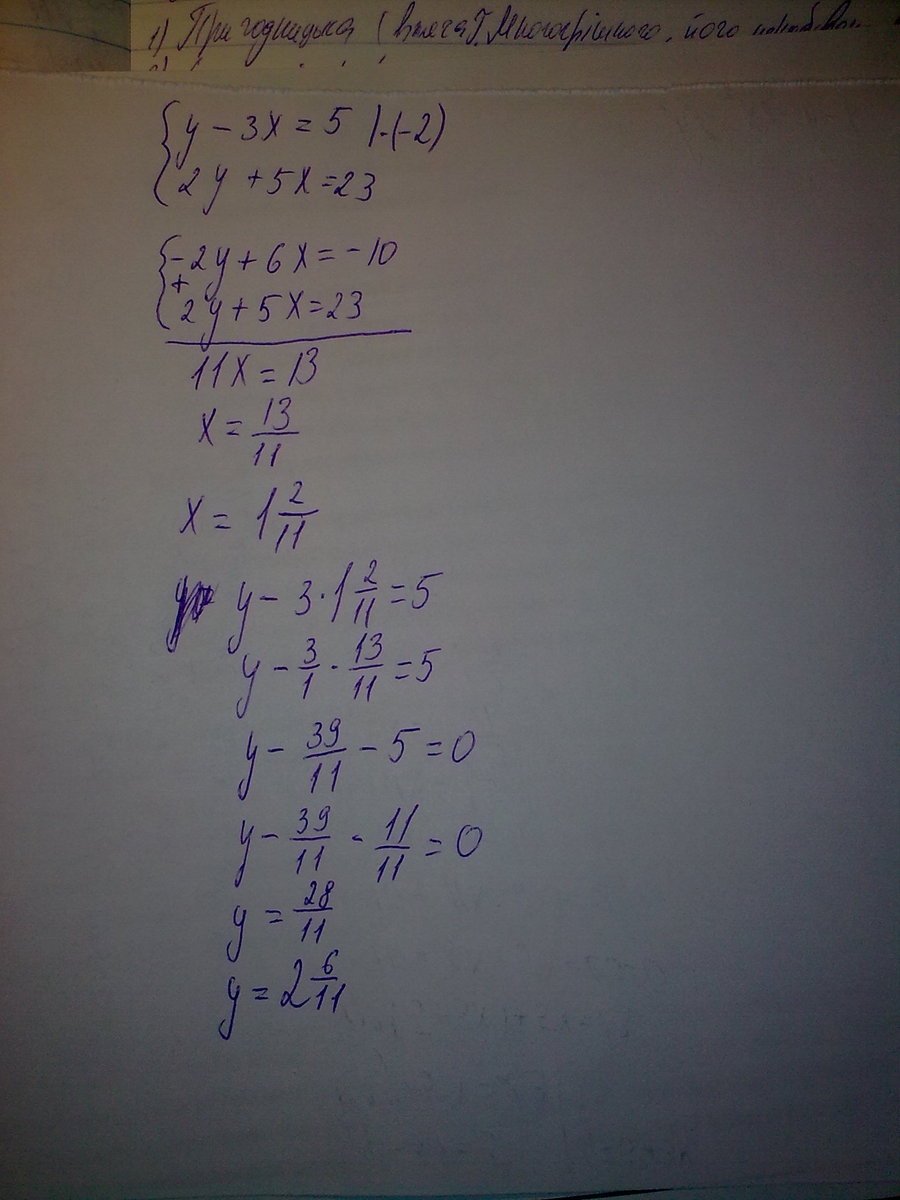 1) Пригодницька (вилага Г. Многогрішного, його
{ y - 3x = 5 |·(-2)
2y + 5x = 23
{ -2y + 6x = -10
+
2y + 5x = 23
11x = 13
x = 13/11
x = 1 2/11
y - 3 · 1 2/11 = 5
y - 3/1 · 13/11 = 5
y - 39/11 - 5 = 0
y - 39/11 - 11/11 = 0
y = 28/11
y = 2 6/11